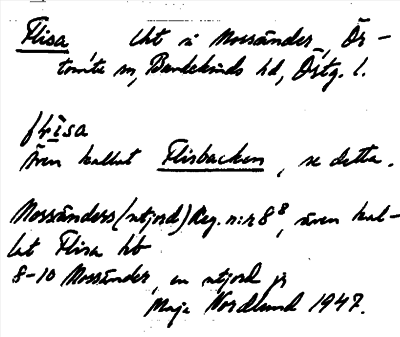 Flisa lht i Mossänder, Ör-
tomta sn, Bankekinds hd, Östg. l.
flisa
Även kallat Flisbacken, se detta.
Mossänders (utjord) Reg. n:r 8⁸, även kal-
lat Flisa hb
8-10 Mossänder, en utjord
Maja Nordlund 1947.